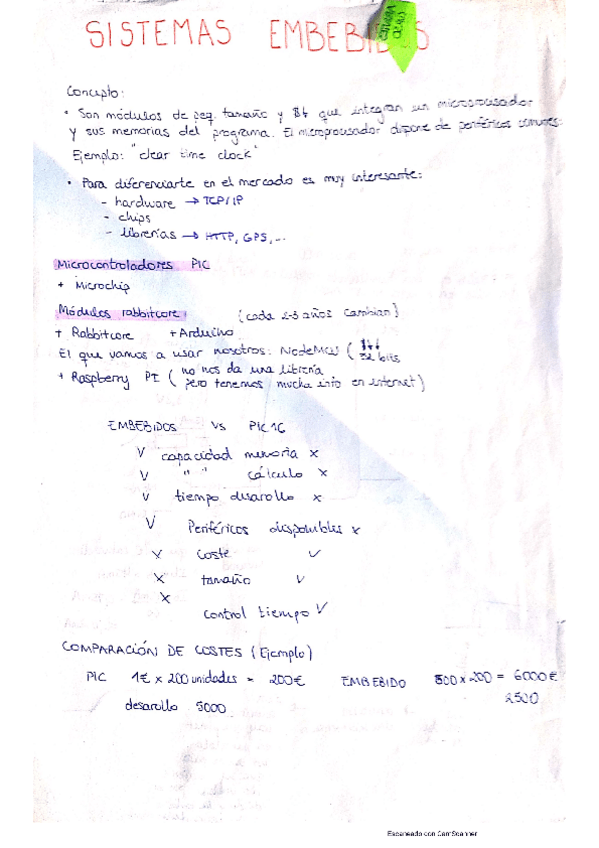 SISTEMAS EMBEBIDOS
Concepto:
• Son módulos de peq. tamaño y que integran un microprocesador
y sus memorias del programa. El microprocesador dispone de periféricos comunes.
Ejemplo: "clear time clock"
• Para diferenciarte en el mercado es muy interesante:
- hardware → TCP/IP
- chips
- librerías → HTTP, GPS,...
Microcontroladores PIC
+ Microchip
Módulos rabbitcore: (cada 2-3 años cambian)
+ Rabbitcore + Arduino
El que vamos a usar nosotros: NodeMCU ( 32 bits
+ Raspberry PI ( no nos da una librería
pero tenemos mucha info en internet)
EMBEBIDOS VS PIC16
V capacidad memoria x
V " " cálculo x
V tiempo desarollo x
V Periféricos disponibles x
x coste V
x tamaño V
x
control tiempo V
COMPARACIÓN DE COSTES (Ejemplo)
PIC 1€ x 200 unidades = 200€ EMBEBIDO x 200 = 6000€
desarollo 5000 2500
Escaneado con CamScanner